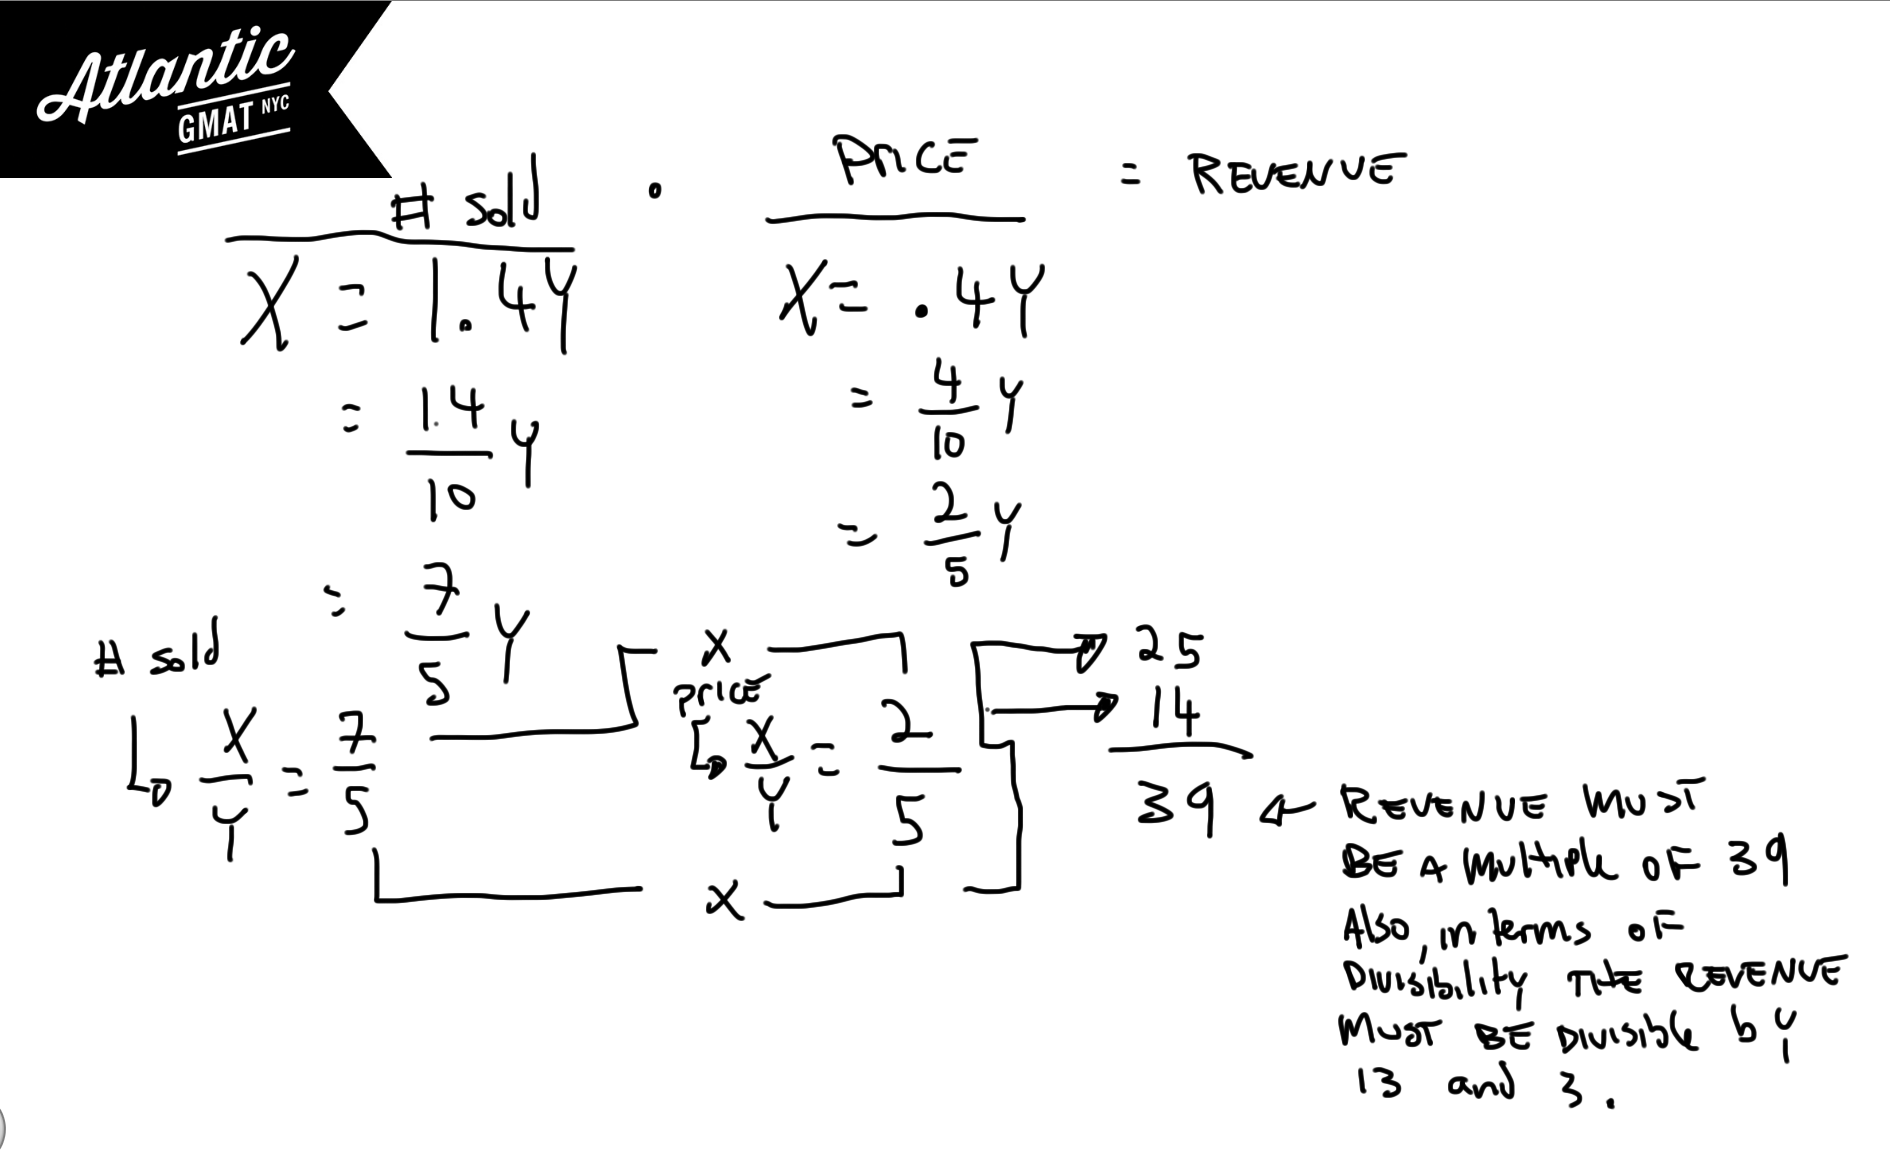 Atlantic
GMAT NYC
# sold · PRICE = REVENUE
X = 1.4Y
= 1.4/10 Y
= 7/5 Y
X = .4Y
= 4/10 Y
= 2/5 Y
# sold
X/Y = 7/5
x
price
X/Y = 2/5
x
25
14
39
REVENUE MUST
BE A Multiple OF 39
Also, in terms OF
Divisibility THE REVENUE
MUST BE DIVISIBLE by
13 and 3.